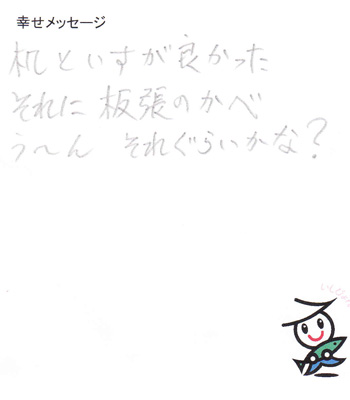 幸せメッセージ
机といすが良かった
それに板張のかべ
う〜ん それぐらいかな?